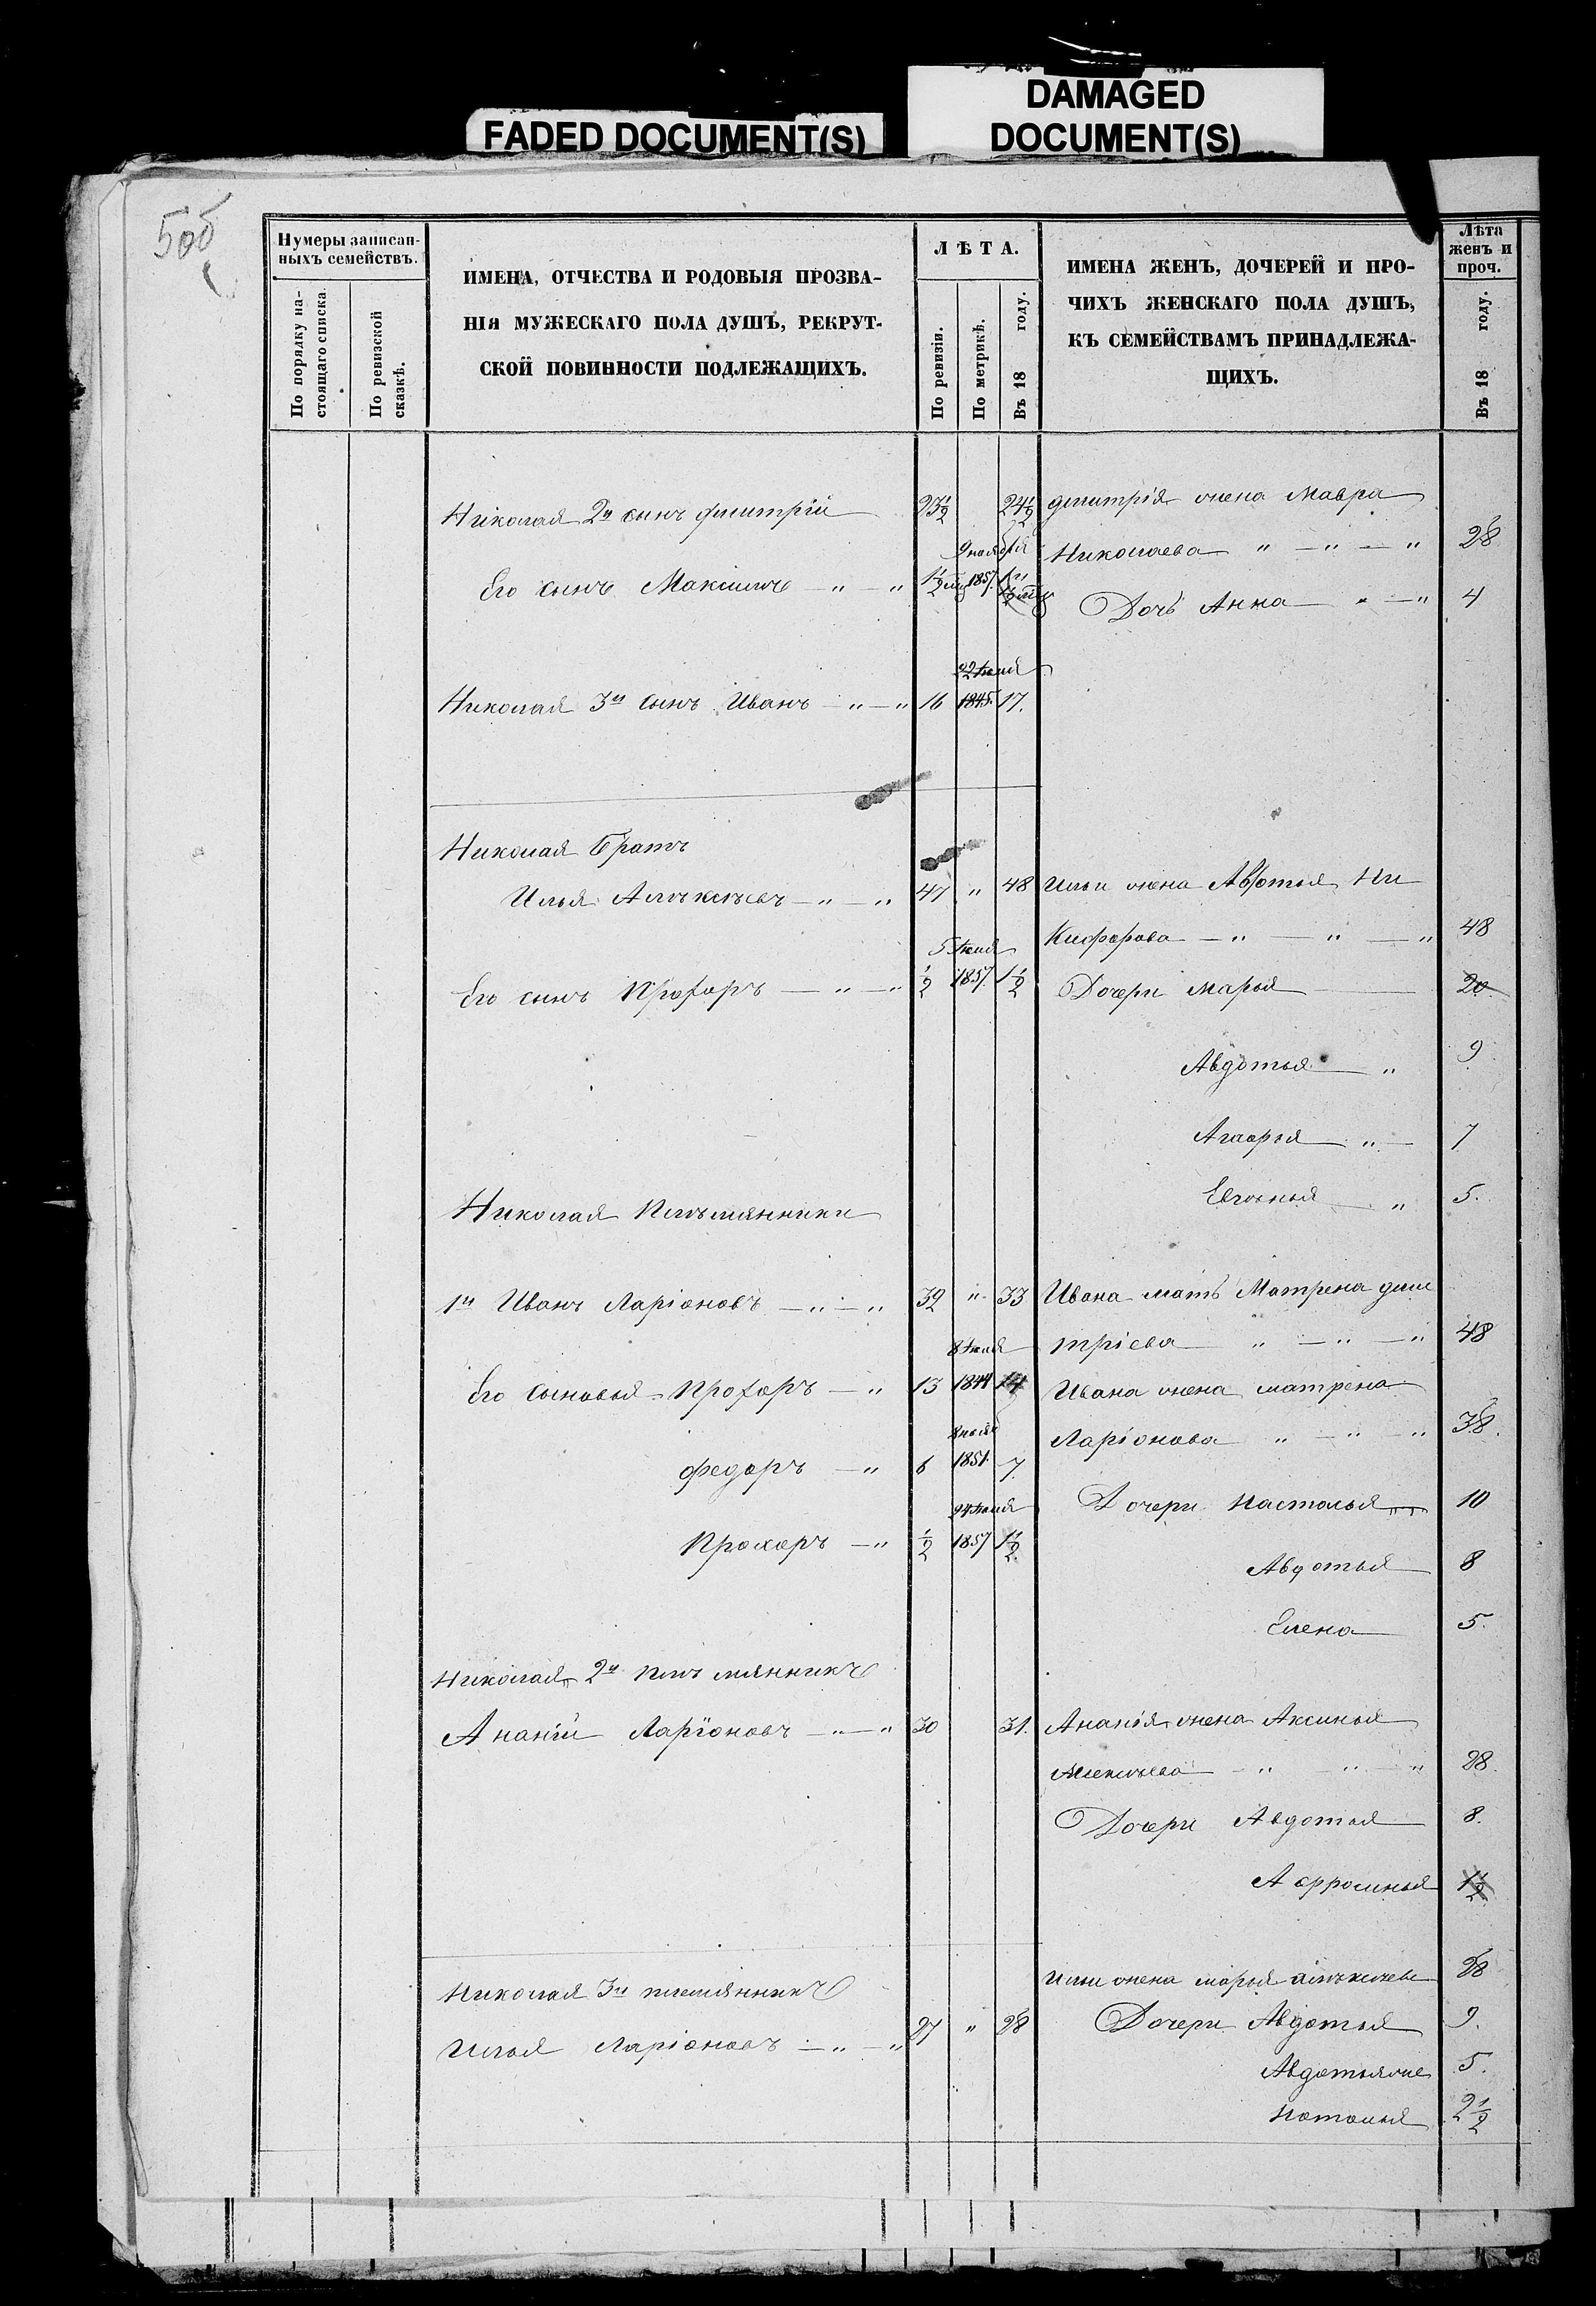 FADED DOCUMENT(S)
DAMAGED
DOCUMENT(S)
Нумеры записан-
ныхъ семействъ.
По порядку на-
стоящаго списка
По ревизской
сказкѣ.
ИМЕНА, ОТЧЕСТВА И РОДОВЫЯ ПРОЗВА-
НІЯ МУЖЕСКАГО ПОЛА ДУШЪ, РЕКРУТ-
СКОЙ ПОВИННОСТИ ПОДЛЕЖАЩИХЪ.
ЛѢТА.
По ревизіи.
По метрикѣ.
Въ 18 году.
ИМЕНА ЖЕНЪ, ДОЧЕРЕЙ И ПРО-
ЧИХЪ ЖЕНСКАГО ПОЛА ДУШЪ,
КЪ СЕМЕЙСТВАМЪ ПРИНАДЛЕЖА-
ЩИХЪ.
Лѣта
женъ и
проч.
Въ 18 году.
Николая 2й сынъ Дмитрій 23½ 24½ Дмитрія жена Мавра
9 ноября Николаева " — " — " 28
Его сынъ Максимъ — " — " 1857
Дочь Анна — " — " 4
Николая 3й сынъ Иванъ — " — " 16 1845. 17.
Николая братъ
Илья Алѣксѣевъ — " — " 47 " 48 Ильи жена Авдотья Ни
Кифорова — " — " — " 48
Его сынъ Прохоръ — " — " ½ 1857. 1½ Дочери Марья 20.
Авдотья — " 9
Агафья — " — 7
Евгенья — " 5.
Николая Племянники
1й Иванъ Ларіоновъ — " — " 32 " 33 Ивана мать Матрена Дми
тріева " — " — " 48
Его сыновья Прохоръ — " 13 1844 14 Ивана жена Матрена
Ларіонова " — " " 38.
Федоръ — " 6 1851. 7.
Дочери Настасья 10
Прохоръ — " ½ 1857 1½.
Авдотья 8
Елена 5.
Николая 2й племянникъ
Ананій Ларіоновъ — " — " 30 31. Ананія жена Аксинья
Алексѣева — " " — " 28.
Дочери Авдотья 8.
Афросинья 1½
Николая 3й племянникъ
Ильи жена Марья Алѣксѣева 28
Илья Ларіоновъ — " — " 27 " 28 Дочери Авдотья 9.
Авдотья 5.
Наталья 2½